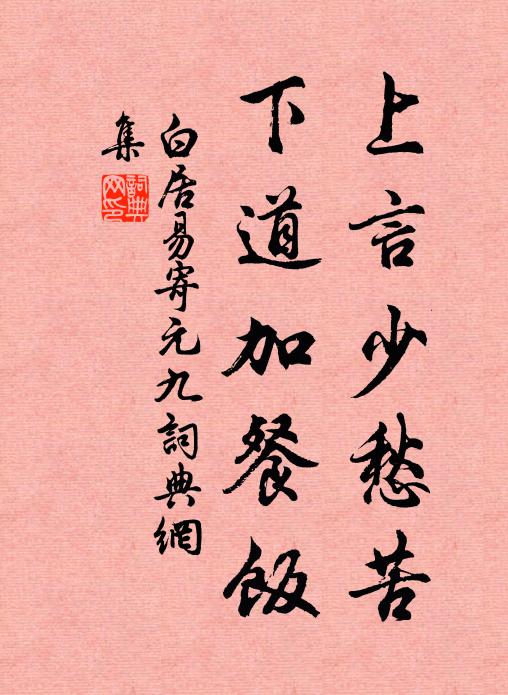 上言少愁苦
下道加餐飯
白居易寄元九詞典網
集
詞典
网印